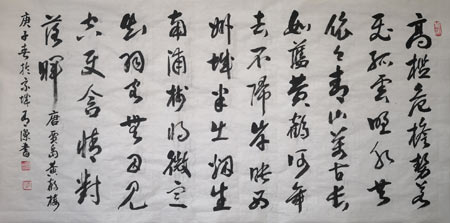 高檻危檐勢若
飛孤雲野水共
依々青山萬古長
如舊黄鶴何年
去不歸岸映西
州城半出烟生
南浦樹將微定
知羽客無因見
空使含情對
落暉 唐賈島黄鶴樓
庚子春於京城
書